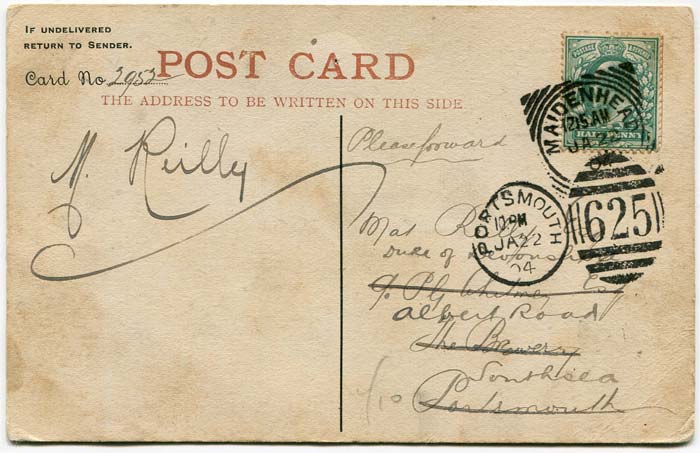 IF UNDELIVERED
RETURN TO SENDER.
Card No. 2952
POST CARD
THE ADDRESS TO BE WRITTEN ON THIS SIDE.
M. Reilly
Please forward
Mat Reilly Esq
Duke of Devonshire
c/o Ply Whitney Esq
Albert Road
The Brewery
Southsea
Portsmouth
POSTAGE
HALF PENNY
MAIDENHEAD
12.15AM
JA 2
04
PORTSMOUTH
10 PM
JA 22
04
625